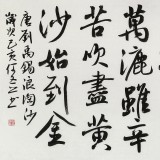 萬漉雖辛
苦吹盡黃
沙始到金
唐劉禹錫浪淘沙